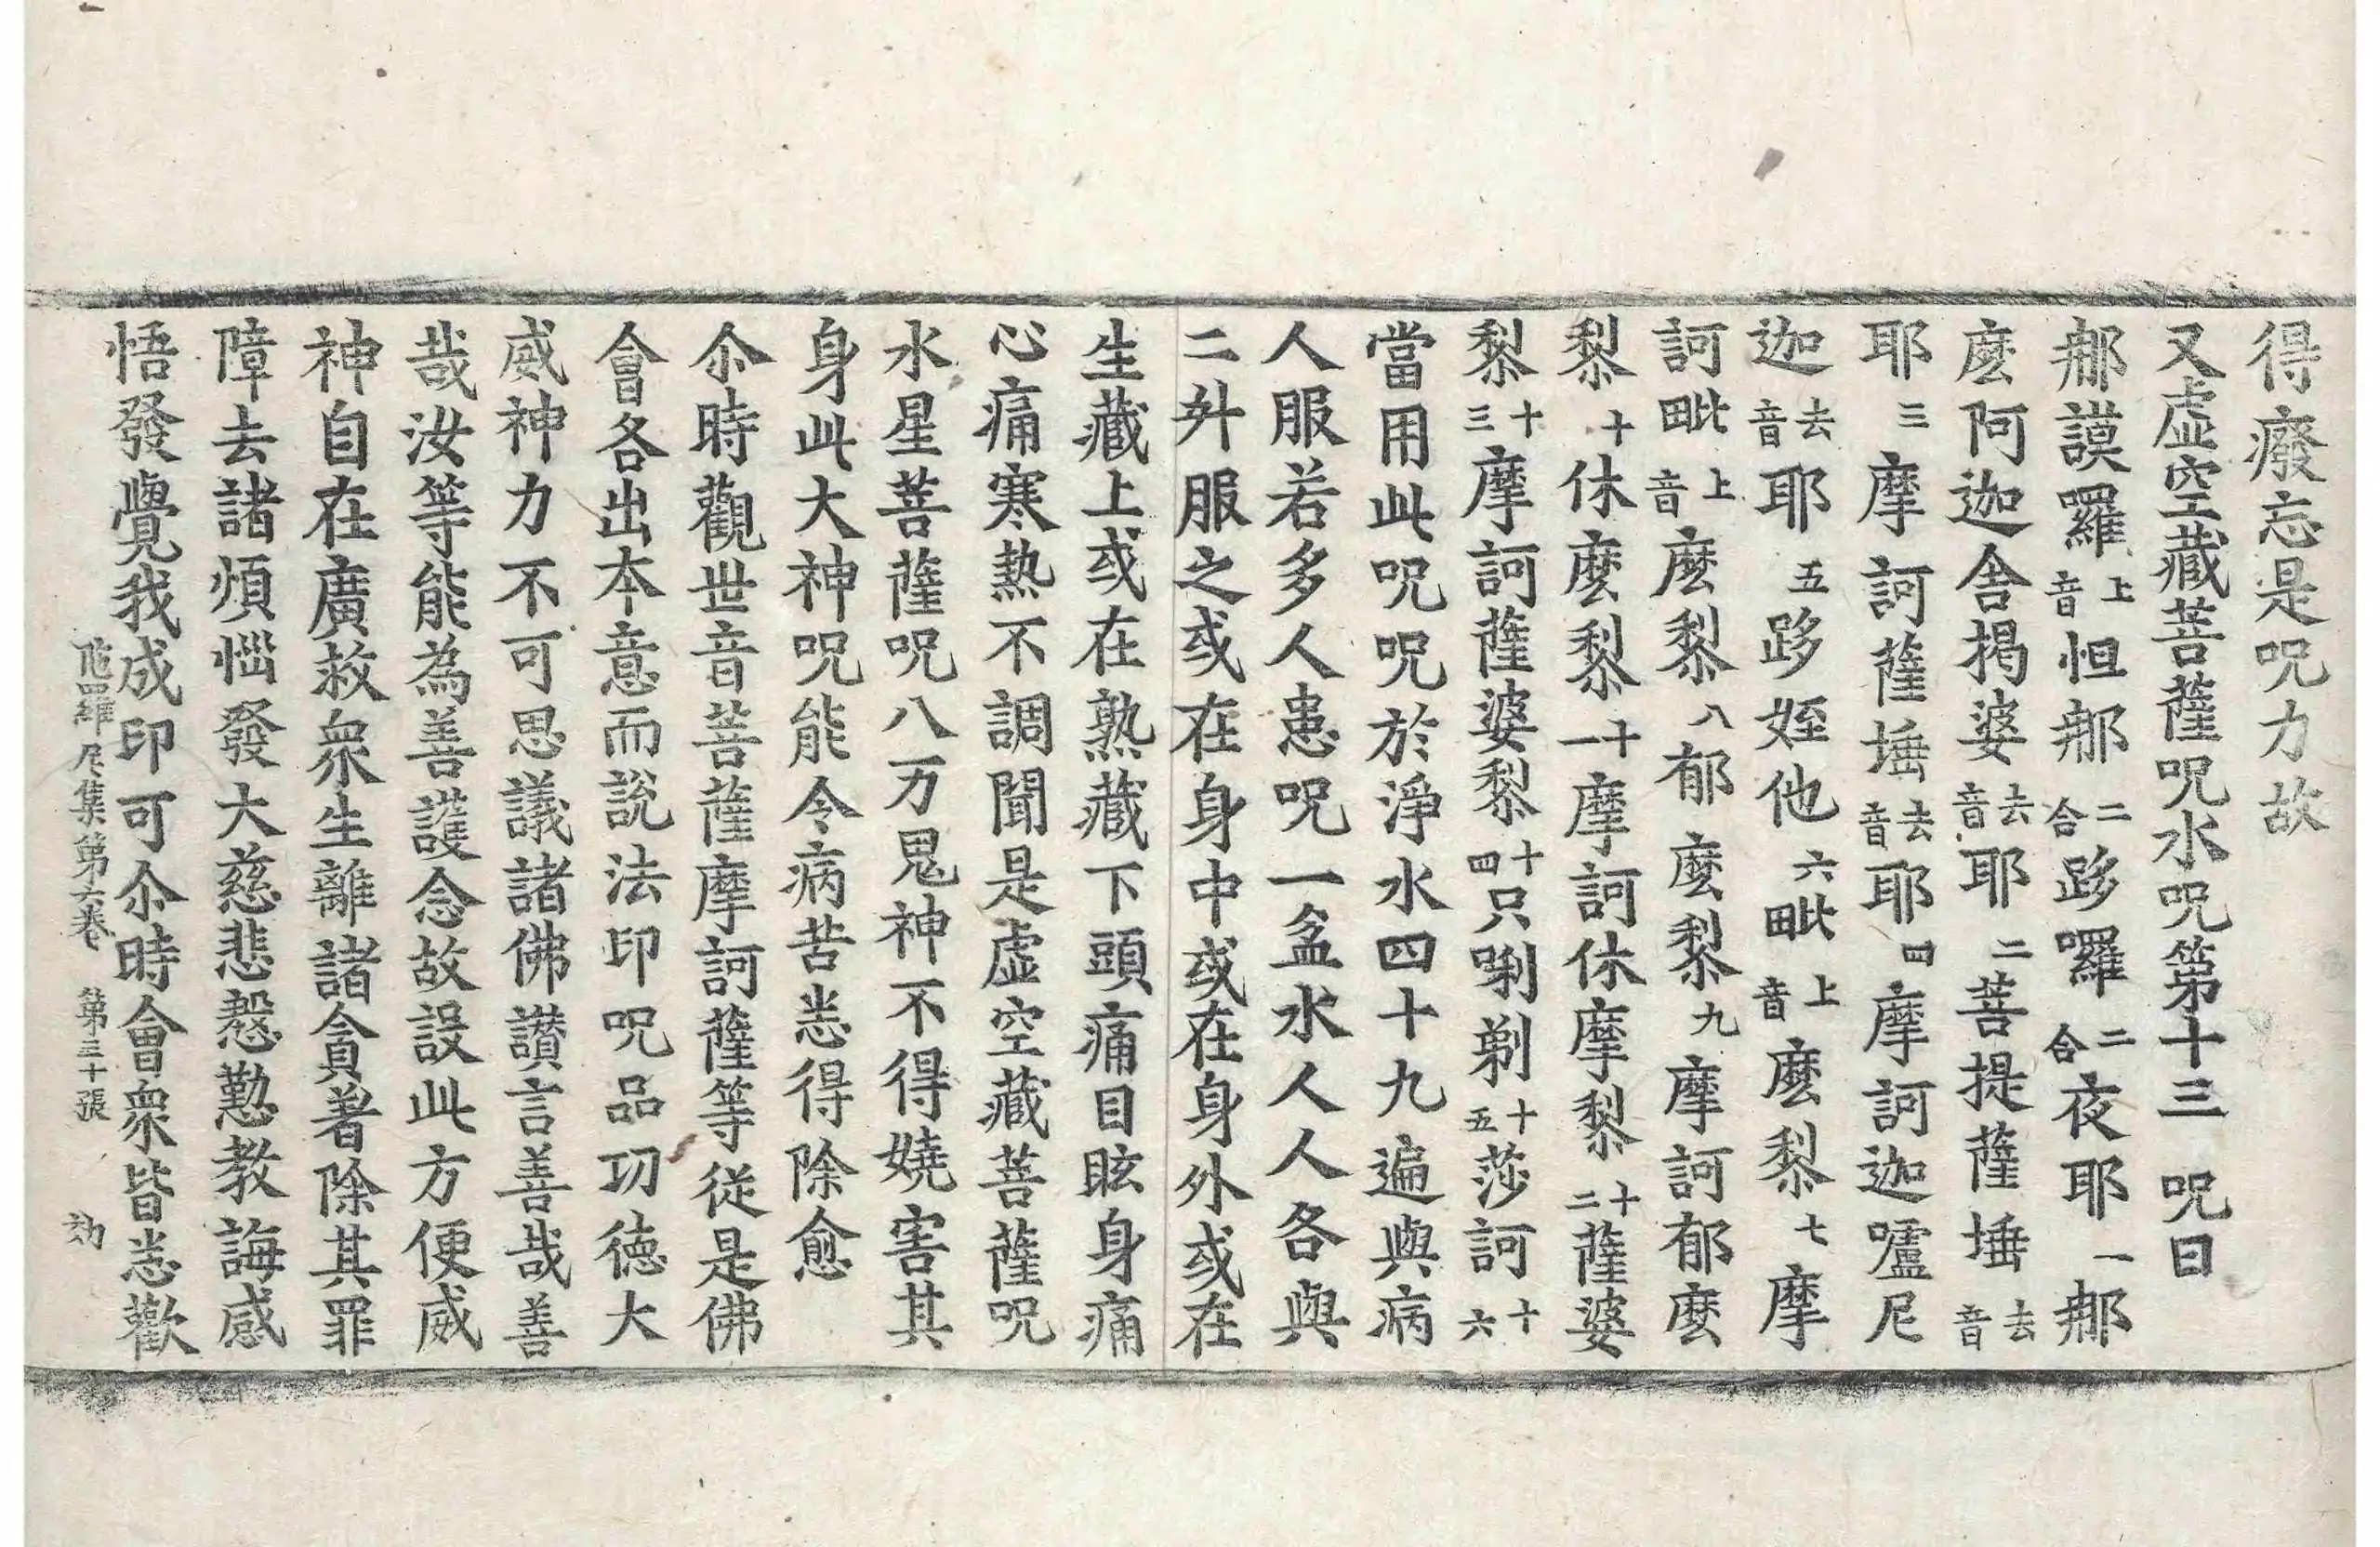 得癈忘是呪力故
又虛空藏菩薩呪水呪第十三 呪曰
𨚗謨囉上音怛𨚗二合跢囉二合夜耶一𨚗
麽阿迦舍揭婆去音耶二菩提薩埵去音
耶三摩訶薩埵去音耶四摩訶迦嚧尼
迦去音耶五跢姪他六毗上音麽黎七摩
訶毗上音麽黎八郁麽黎九摩訶郁麽
黎十休麽黎十一摩訶休摩黎十二薩婆
黎十三摩訶薩婆黎十四只唎剃十五莎訶十六
當用此呪呪於淨水四十九遍與病
人服若多人患呪一盆水人人各與
二升服之或在身中或在身外或在
生藏上或在熟藏下頭痛目眩身痛
心痛寒熱不調聞是虛空藏菩薩呪
水星菩薩呪八万鬼神不得嬈害其
身此大神呪能令病苦悉得除愈
尒時觀世音菩薩摩訶薩等從是佛
會各出本意而說法印呪品功德大
威神力不可思議諸佛讚言善哉善
哉汝等能為善護念故設此方便威
神自在廣救衆生離諸貪著除其罪
障去諸煩惱發大慈悲慇懃教誨感
悟發覺我成印可尒時會衆皆悉歡
陁羅尼集第六卷 第三十張 劲